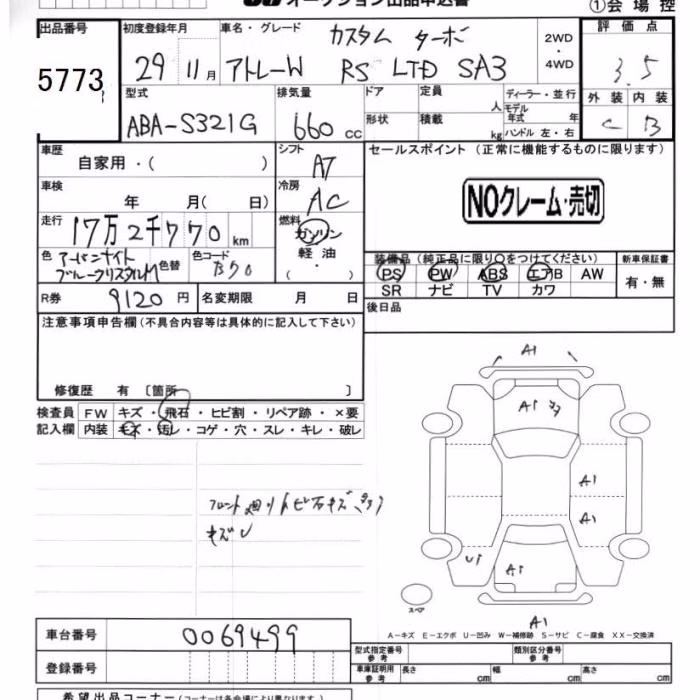 オークション出品申込書
①会場控
出品番号
5773
初度登録年月
29 11月
車名・グレード
カスタム ターボ
アトレーW RS LTD SA3
2WD
・
4WD
評価点
3.5
型式
ABA-S321G
排気量
660 cc
ドア
形状
定員 人
積載 kg
ディーラー・並行
モデル年式 年
ハンドル 左・右
外装 内装
C B
車歴
自家用・( )
シフト
AT
セールスポイント (正常に機能するものに限ります)
車検
年 月( 日)
冷房
AC
NOクレーム・売切
走行
17万2千770km
燃料
ガソリン・
軽油・
( )
色 アーバンナイトブルークリスタルM
色替
色コード
B70
装備品 (純正品に限り○をつけてください)
PS PW ABS エアB AW
SR ナビ TV カワ
新車保証書
有・無
R券 9120円
名変期限 月 日
後日品
注意事項申告欄 (不具合内容等は具体的に記入して下さい)
修復歴 有 〔箇所 〕
検査員記入欄
FW キズ・飛石・ヒビ割・リペア跡・×要
内装 キズ・汚レ・コゲ・穴・スレ・キレ・破レ
フロント廻りトビ石キズ、
キズU
A1
A1
A1
A1
U1
A1
スペア
A1
A-キズ E-エクボ U-凹み W-補修跡 S-サビ C-腐食 XX-交換済
車台番号
0069499
登録番号
型式指定番号
参考
類別区分番号
参考
車庫証明用
参考
長さ cm
幅 cm
高さ cm
希望出品コーナー (コーナーは各会場により異なります)